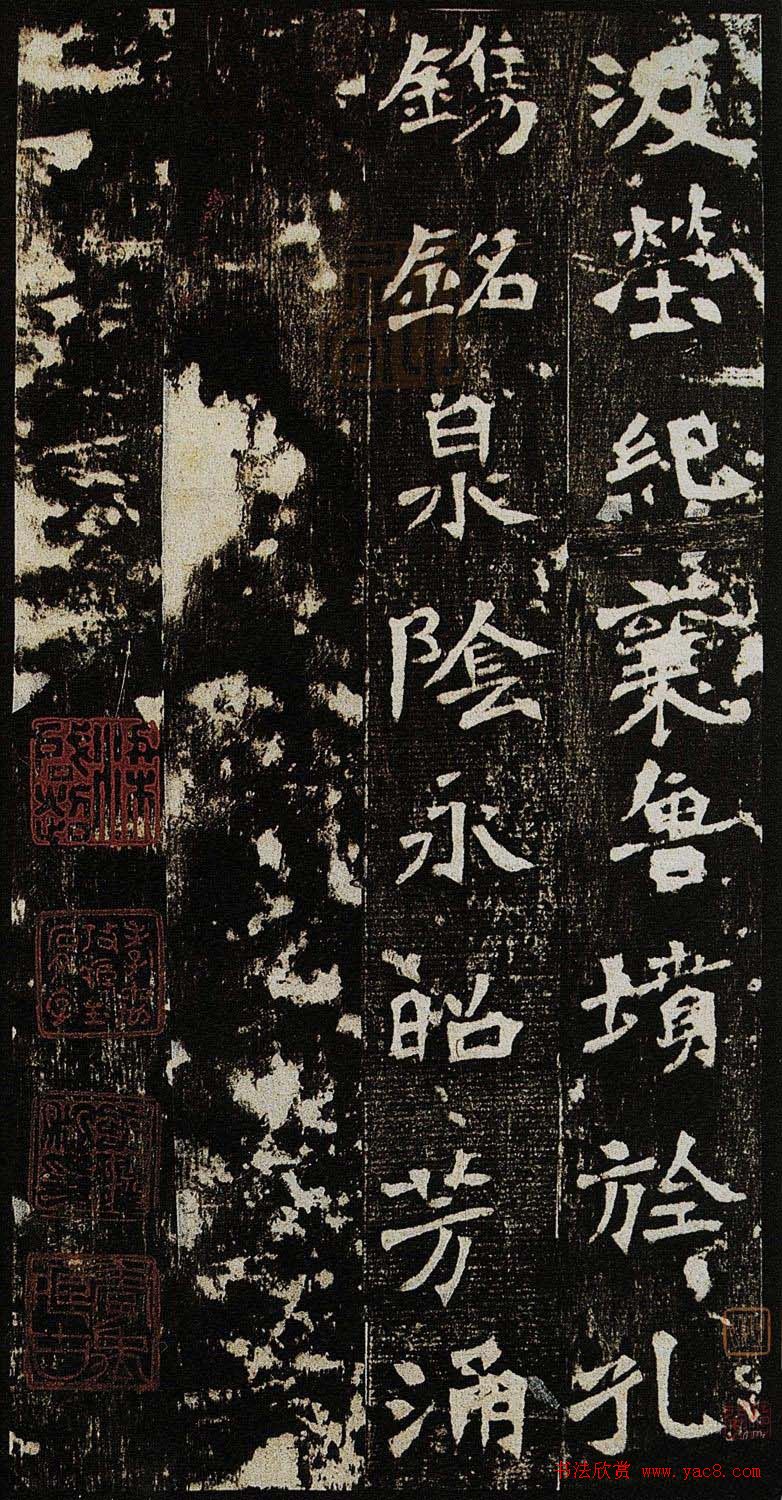 汲塋紀襄魯墳於孔
鐫銘泉陰永昭芳涌
书法欣赏 www.yac8.com